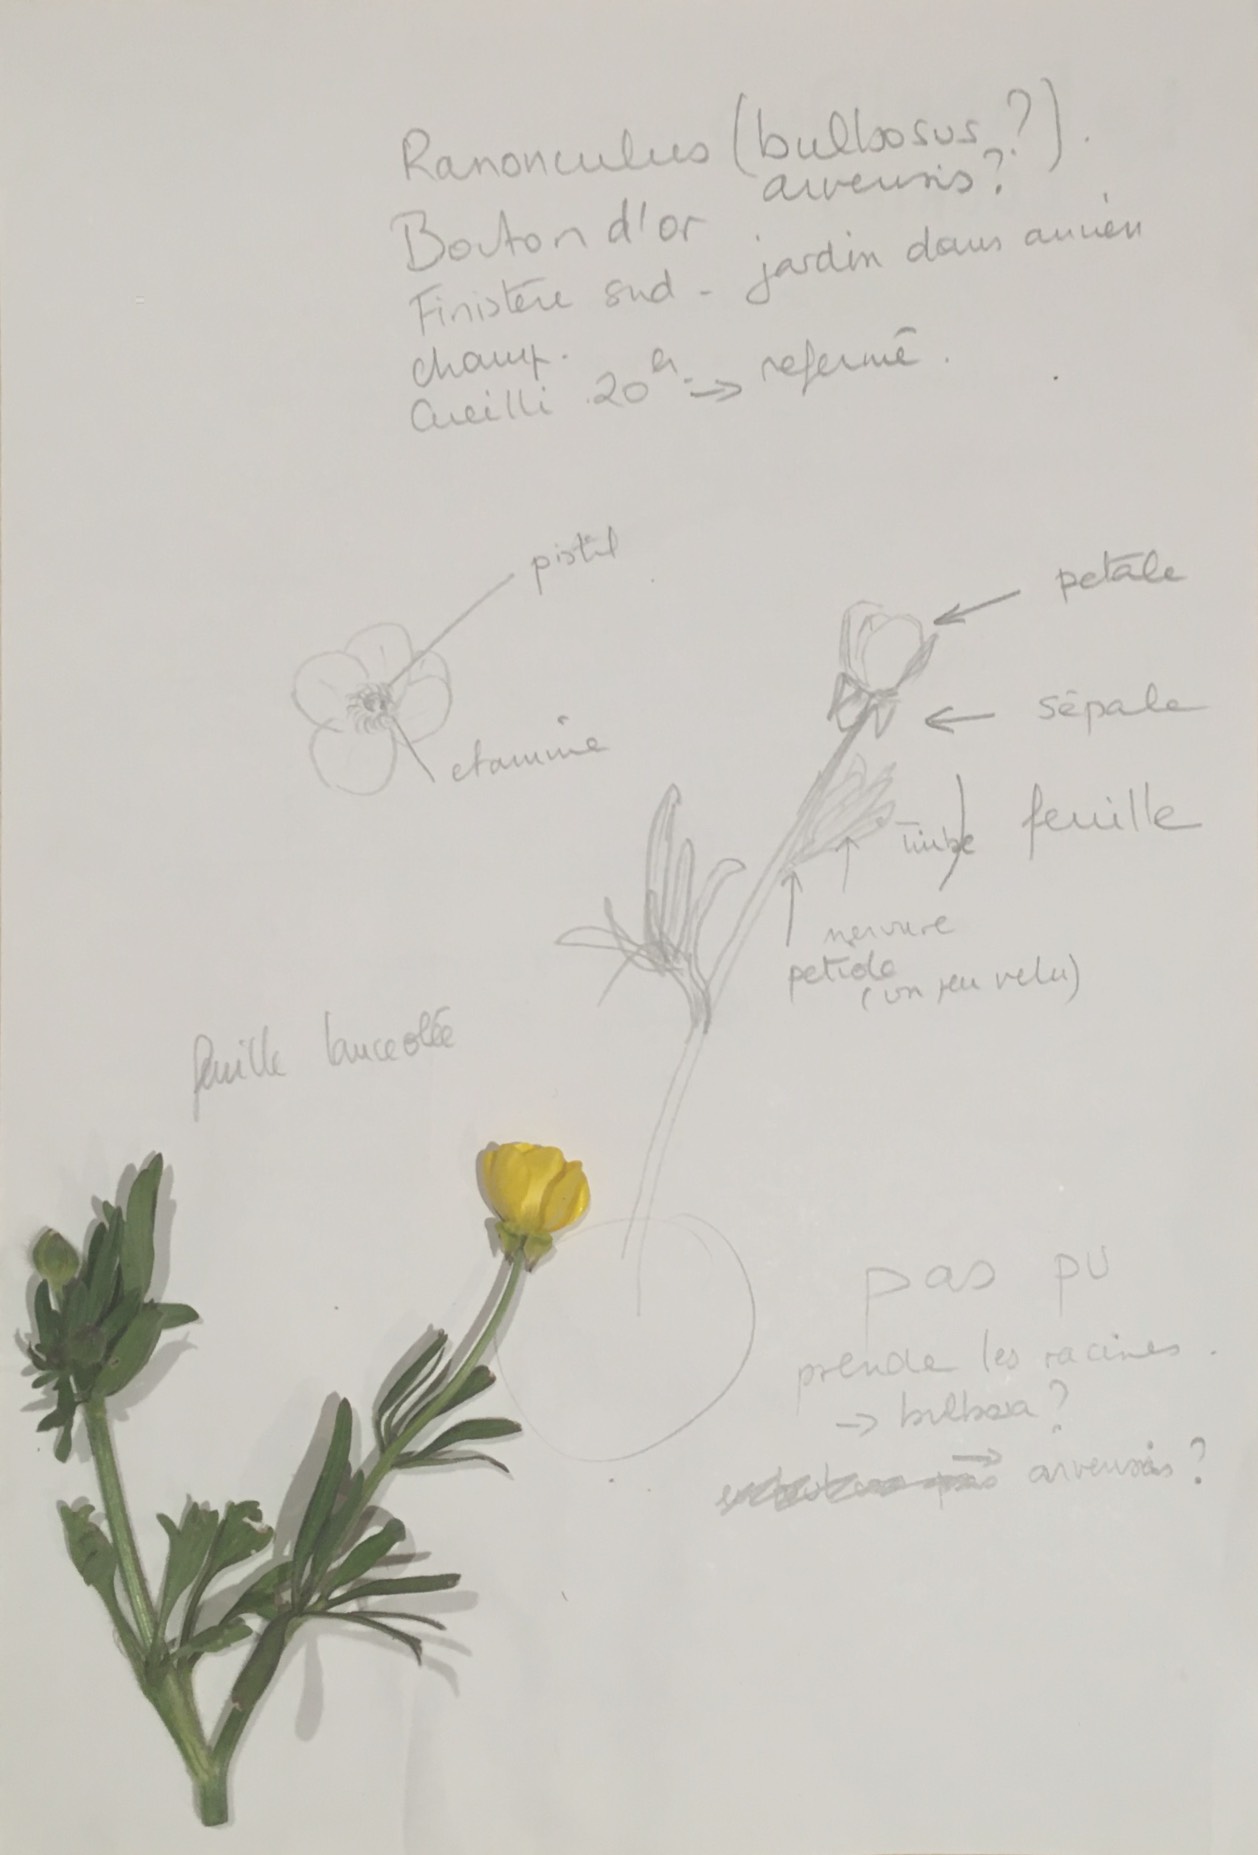 Ranonculus (bulbosus ?).
arvensis ?
Bouton d'or
Finistère sud - jardin dans ancien
champ.
Cueilli 20h. → refermé.
pistil
petale
sépale
etamine
limbe) feuille
nervure
petiole
(un peu velu)
feuille lanceolée
pas pu
prende les racines.
→ bulbosa ?
→ arvensis ?